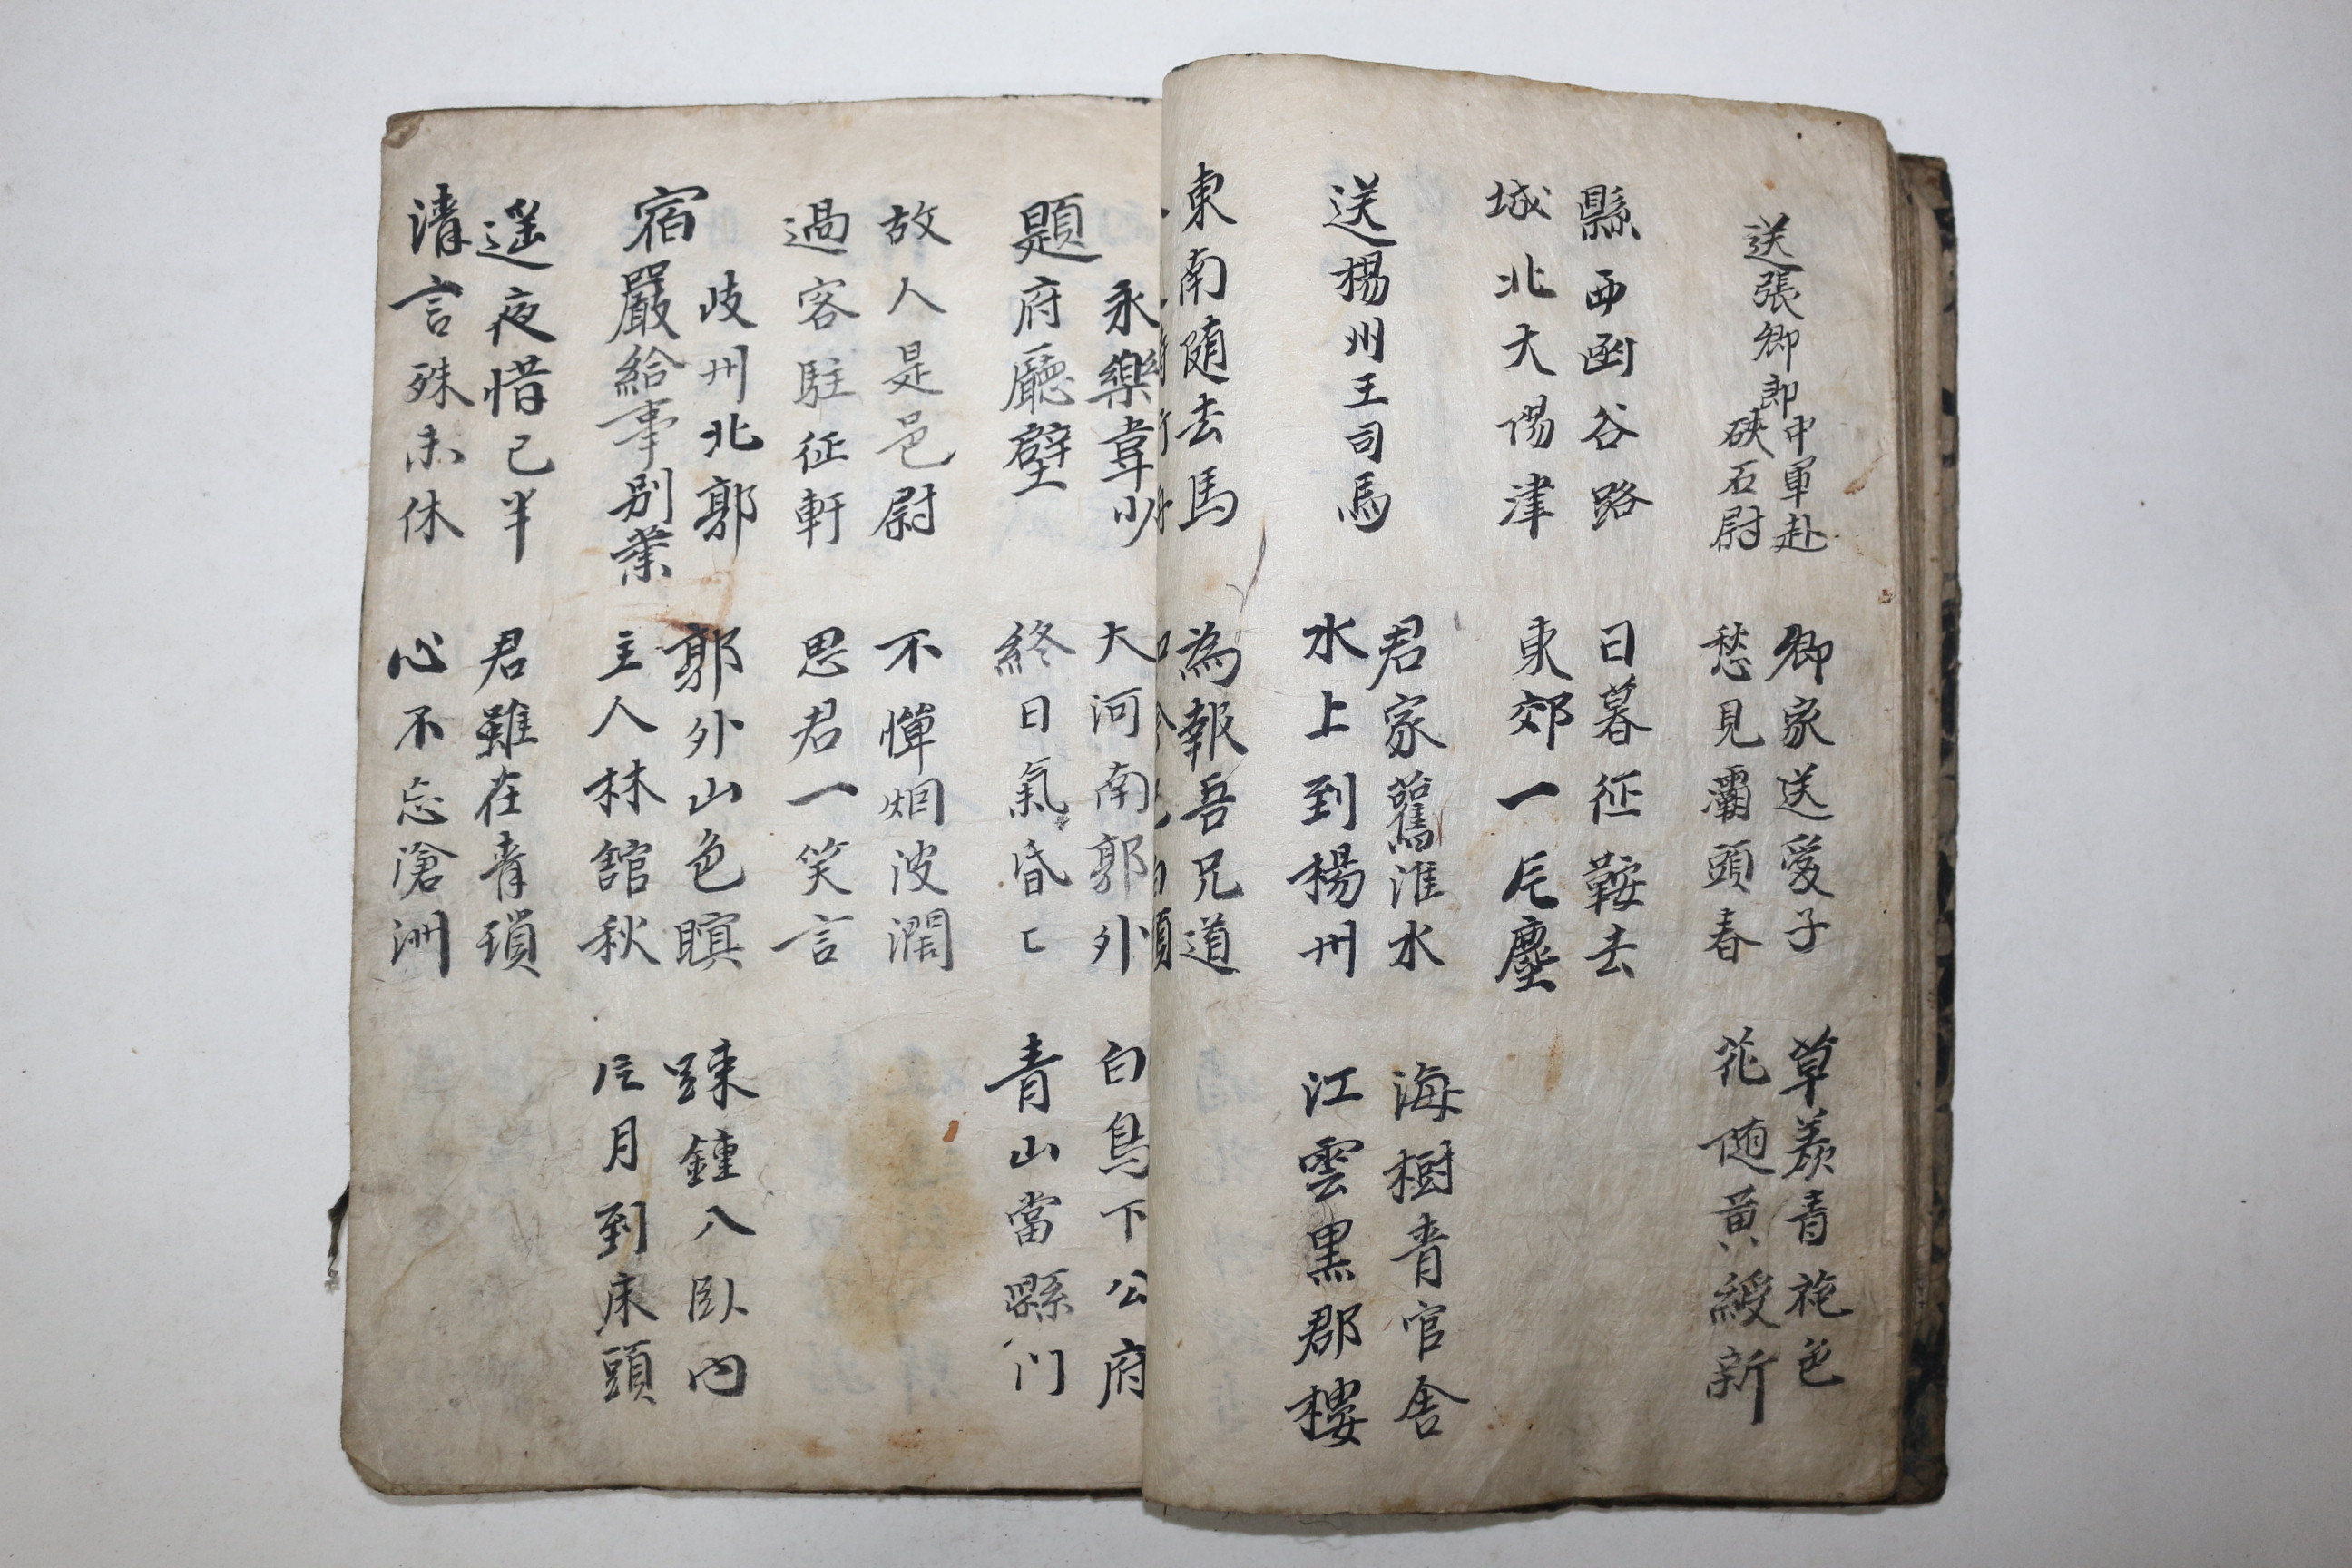 送張卿郎
中軍赴
硤石尉
卿家送愛子
愁見灞頭春
草羨青袍色
花随黃綬新
縣西函谷路
城北大陽津
日暮征鞍去
東郊一片塵
送楊州王司馬
君家舊淮水
水上到楊州
海樹青官舍
江雲黑郡樓
東南随去馬
為報吾兄道
永樂韋少
題府廳壁
大河南郭外
終日氣昏〻
白鳥下公府
青山當縣门
故人是邑尉
過客駐征軒
不憚烟波濶
思君一笑言
宿岐州北郭
嚴給事别業
郭外山色暝
主人林舘秋
踈鍾入臥內
片月到床頭
遥夜惜已半
清言殊未休
君雖在青瑣
心不忘滄洲